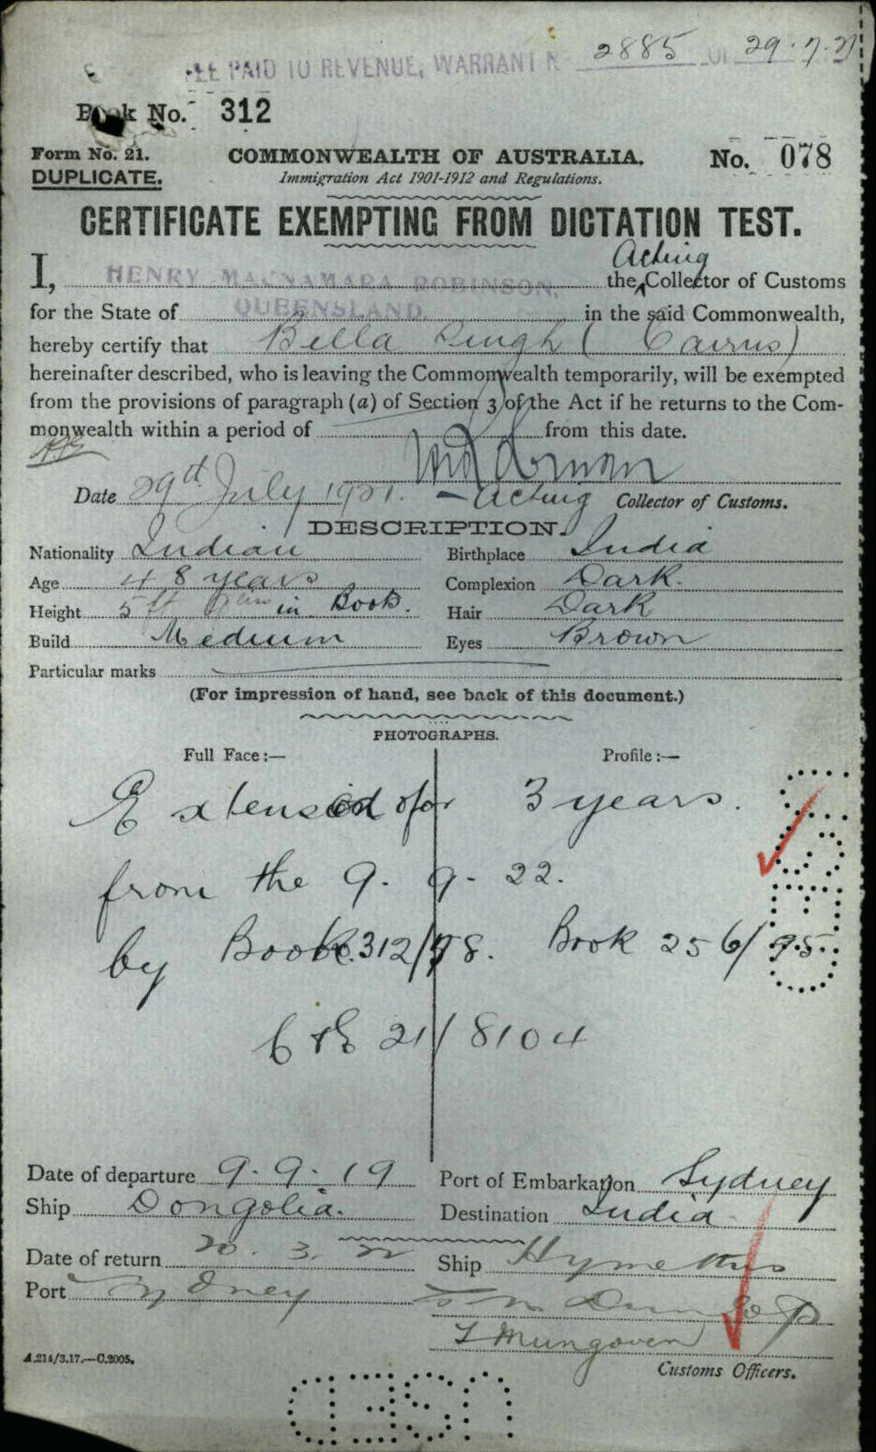 FEE PAID TO REVENUE, WARRANT N 2885 OF 29.7.21
Book No. 312
Form No. 21.
DUPLICATE.
COMMONWEALTH OF AUSTRALIA.
No. 078
Immigration Act 1901-1912 and Regulations.
CERTIFICATE EXEMPTING FROM DICTATION TEST.
I, HENRY MACNAMARA ROBINSON, the Acting Collector of Customs
for the State of QUEENSLAND in the said Commonwealth,
hereby certify that Bella Singh (Cairns)
hereinafter described, who is leaving the Commonwealth temporarily, will be exempted
from the provisions of paragraph (a) of Section 3 of the Act if he returns to the Com-
monwealth within a period of from this date.
Date 29th July 1921. Acting Collector of Customs.
DESCRIPTION.
Nationality Indian Birthplace India
Age 48 years Complexion Dark.
Height 5 ft in Boots. Hair Dark
Build Medium Eyes Brown
Particular marks
(For impression of hand, see back of this document.)
PHOTOGRAPHS.
Full Face:— Profile:—
Extension for 3 years.
from the 9.9.22.
by Book 312/78. Book 256/95
C & E 21/8104
Date of departure 9.9.19 Port of Embarkation Sydney
Ship Dongolia. Destination India
Date of return 20.3.22 Ship Hymettus
Port Sydney
T Mungoven
Customs Officers.
A.214/3.17.—C.2005.